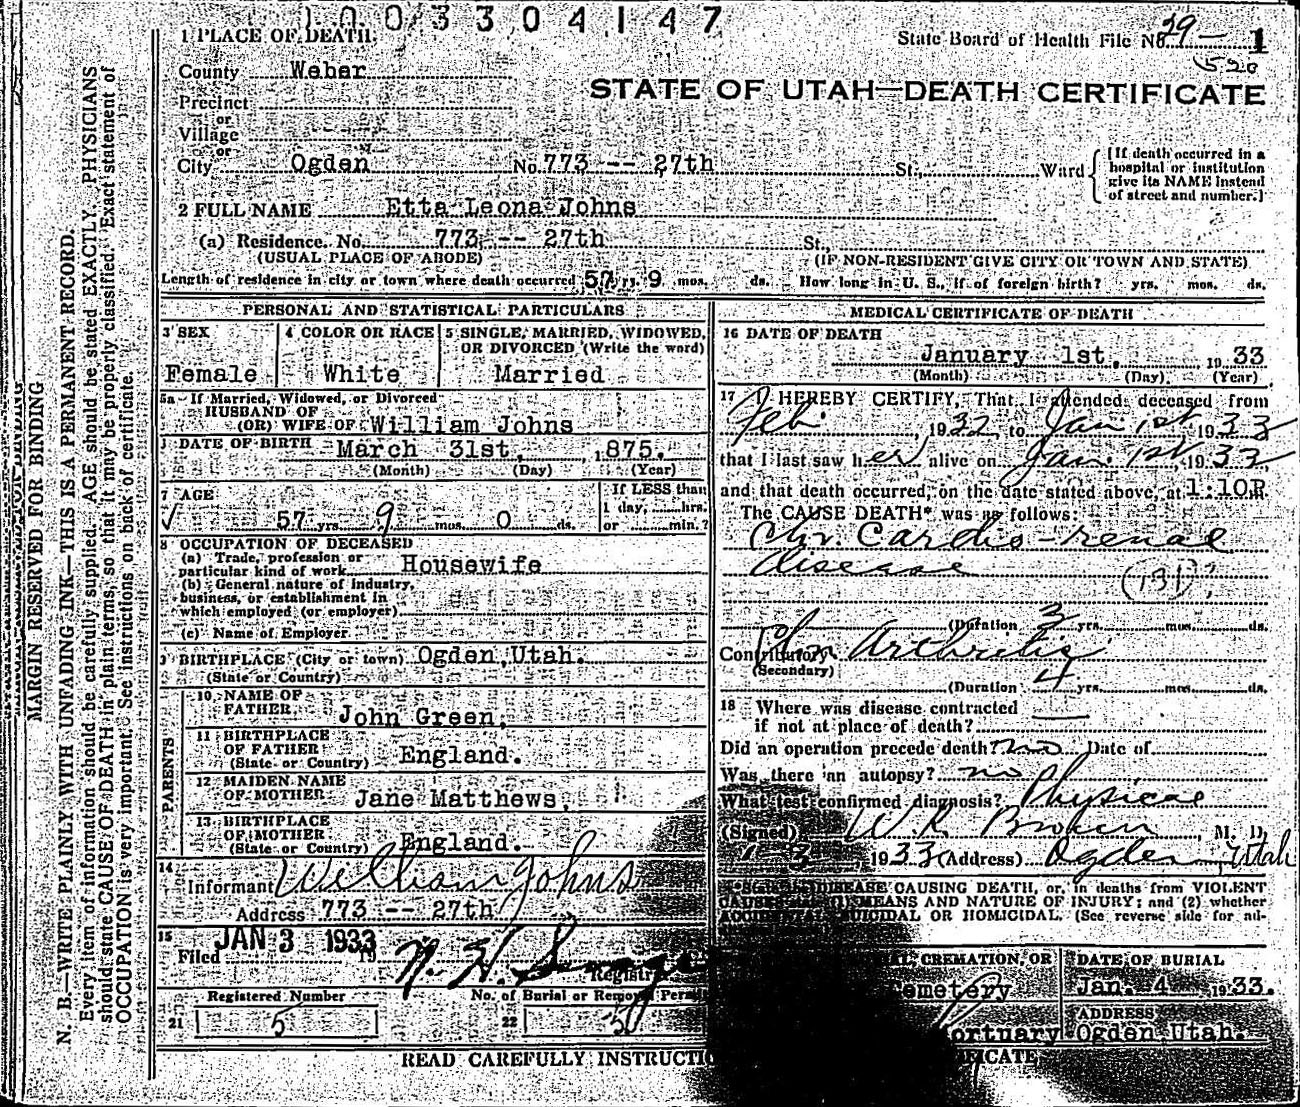 1003304147
1 PLACE OF DEATH.
State Board of Health File No. 29 — 1
520
County Weber
STATE OF UTAH—DEATH CERTIFICATE
Precinct
or
Village
or
City Ogden No. 773 -- 27th St., Ward
[If death occurred in a
hospital or institution
give its NAME instead
of street and number.]
2 FULL NAME Etta Leona Johns
(a) Residence. No. 773 -- 27th St.,
(USUAL PLACE OF ABODE) (IF NON-RESIDENT GIVE CITY OR TOWN AND STATE)
Length of residence in city or town where death occurred 57 yrs. 9 mos. ds. How long in U. S., if of foreign birth? yrs. mos. ds.
PERSONAL AND STATISTICAL PARTICULARS
3 SEX
Female
4 COLOR OR RACE
White
5 SINGLE, MARRIED, WIDOWED,
OR DIVORCED (Write the word)
Married
5a If Married, Widowed, or Divorced
HUSBAND OF
(OR) WIFE OF William Johns
DATE OF BIRTH March 31st, 1875.
(Month) (Day) (Year)
7 AGE
57 yrs. 9 mos. 0 ds.
If LESS than
1 day, hrs.
or min.?
8 OCCUPATION OF DECEASED
(a) Trade, profession or
particular kind of work Housewife
(b) General nature of industry,
business, or establishment in
which employed (or employer)
(c) Name of Employer
9 BIRTHPLACE (City or town) Ogden, Utah.
(State or Country)
PARENTS
10 NAME OF
FATHER John Green,
11 BIRTHPLACE
OF FATHER
(State or Country) England.
12 MAIDEN NAME
OF MOTHER Jane Matthews,
13 BIRTHPLACE
OF MOTHER
(State or Country) England.
14
Informant William Johns
Address 773 -- 27th
15
Filed JAN 3 1933
19
Registr
Registered Number
21 5
No. of Burial or Removal Permit
22 5
MEDICAL CERTIFICATE OF DEATH
16 DATE OF DEATH
January 1st, 1933
(Month) (Day) (Year)
17 I HEREBY CERTIFY, That I attended deceased from
Feb 1932, to Jan 1st 1933
that I last saw her alive on Jan. 1st, 1933
and that death occurred, on the date stated above, at 1:10P
The CAUSE DEATH* was as follows:
Chr. Cardio-renal
disease
(131)
(Duration 3 yrs. mos. ds.
Contributory Chr Arthritis
(Secondary)
(Duration 4 yrs. mos. ds.
18 Where was disease contracted
if not at place of death?
Did an operation precede death? no Date of
Was there an autopsy? no
What test confirmed diagnosis? Physical
(Signed) W.R. Brown, M. D.
1-3 1933 (Address) Ogden, Utah
DISEASE CAUSING DEATH, or, in deaths from VIOLENT
CAUSES MEANS AND NATURE OF INJURY; and (2) whether
ACCIDENTAL, SUICIDAL OR HOMICIDAL. (See reverse side for ad-
CREMATION, OR
Cemetery
DATE OF BURIAL
Jan. 4 1933.
Mortuary
ADDRESS
Ogden Utah.
READ CAREFULLY INSTRUCTIO
MARGIN RESERVED FOR BINDING
N. B.—WRITE PLAINLY, WITH UNFADING INK—THIS IS A PERMANENT RECORD.
Every item of information should be carefully supplied. AGE should be stated EXACTLY. PHYSICIANS
should state CAUSE OF DEATH in plain terms, so that it may be properly classified. Exact statement of
OCCUPATION is very important. See instructions on back of certificate.